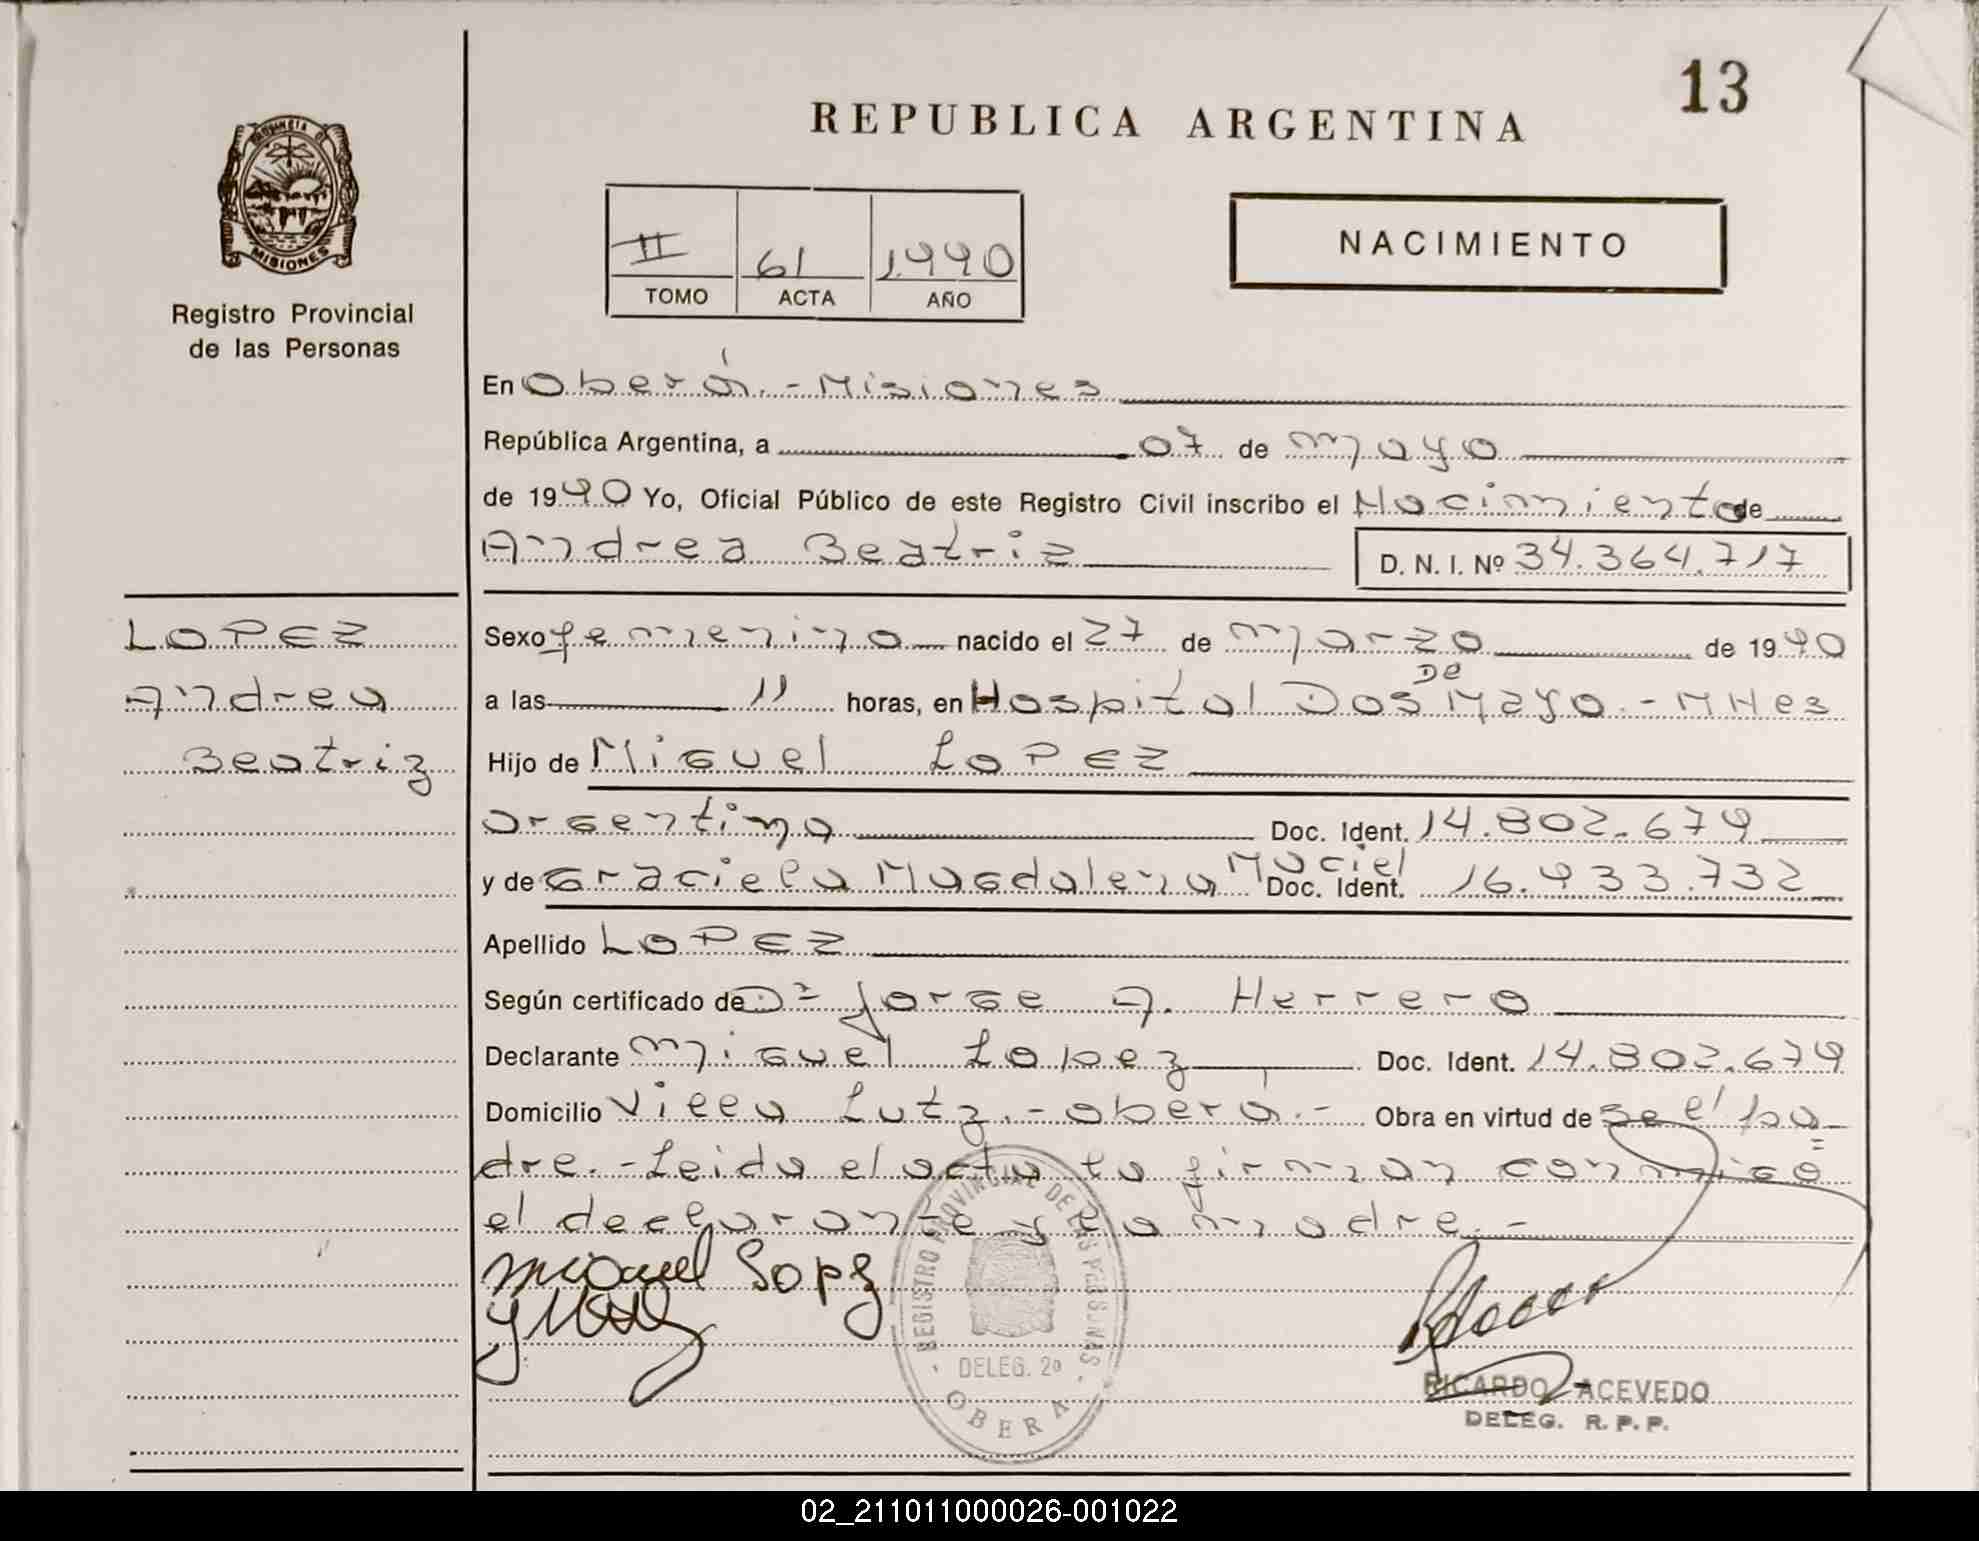 13
REPUBLICA ARGENTINA
PROVINCIA DE
MISIONES
Registro Provincial
de las Personas
NACIMIENTO
II 61 1990
TOMO ACTA AÑO
En Oberá.- Misiones
República Argentina, a 07 de mayo
de 1990 Yo, Oficial Público de este Registro Civil inscribo el Nacimiento de
Andrea Beatriz D. N. I. Nº 34.364.717
LOPEZ
Andrea
Beatriz
Sexo femenino nacido el 27 de marzo de 1990
a las 11 horas, en Hospital Dos De Mayo.- MNes
Hijo de Miguel LOPEZ
argentino Doc. Ident. 14.802.679
y de Graciela Magdalena Maciel Doc. Ident. 16.933.732
Apellido LOPEZ
Según certificado de Dr Jorge A. Herrero
Declarante Miguel Lopez Doc. Ident. 14.802.679
Domicilio Villa Lutz.- Oberá.- Obra en virtud de Se el pa=
dre.- Leida el acta la firman conmigo
el declarante y la madre.-
Miguel Lopez
REGISTRO PROVINCIAL DE LAS PERSONAS
DELEG. 2a
OBERA
RICARDO ACEVEDO
DELEG. R. P. P.
02_211011000026-001022